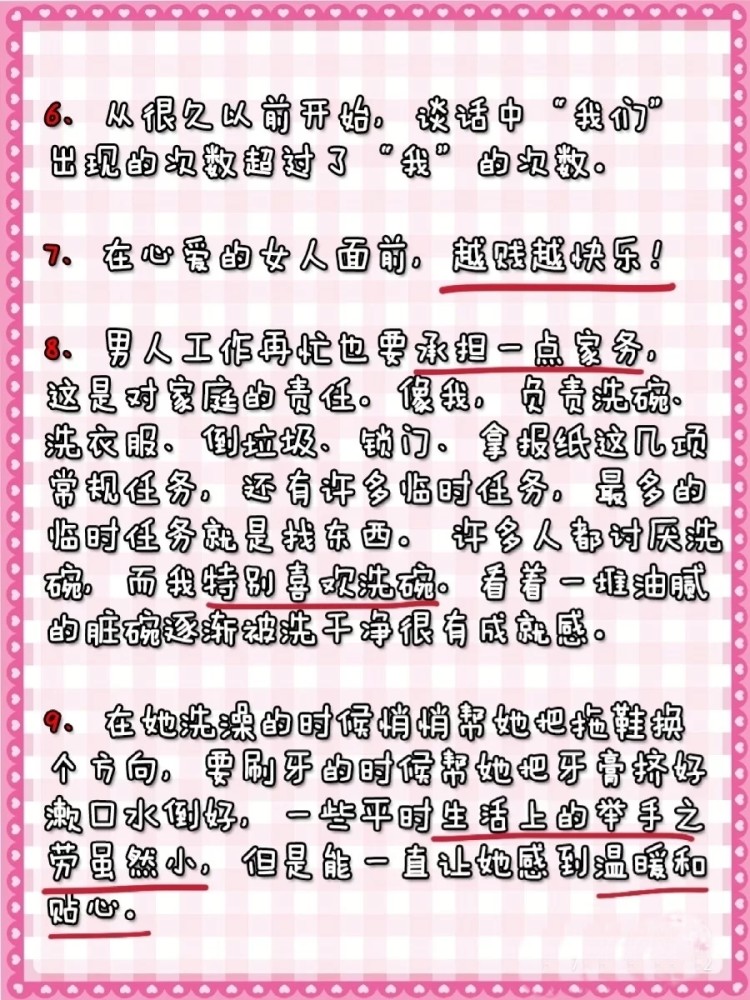 6、从很久以前开始，谈话中“我们”
出现的次数超过了“我”的次数。
7、在心爱的女人面前，越贱越快乐！
8、男人工作再忙也要承担一点家务，
这是对家庭的责任。像我，负责洗碗、
洗衣服、倒垃圾、锁门、拿报纸这几项
常规任务，还有许多临时任务，最多的
临时任务就是找东西。许多人都讨厌洗
碗，而我特别喜欢洗碗。看着一堆油腻
的脏碗逐渐被洗干净很有成就感。
9、在她洗澡的时候悄悄帮她把拖鞋换
个方向，要刷牙的时候帮她把牙膏挤好
漱口水倒好，一些平时生活上的举手之
劳虽然小，但是能一直让她感到温暖和
贴心。